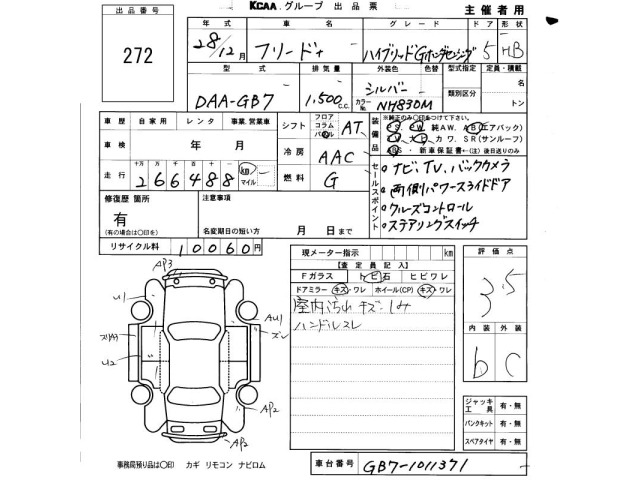 KCAA グループ 出品票
主催者用
出品番号
272
年式 車名 グレード ドア 形状
28/12月 フリード+ ハイブリッドGホンダセンシング 5 HB
型式 排気量 外装色 色替 型式指定 定員・積載
DAA-GB7 1,500 c.c. シルバー 類別区分 名
カラーNo. NH830M トン
車歴 自家用 レンタ 事業、営業車
シフト フロア コラム パネル AT
装備品
※純正のみ○印をつけて下さい。
PS. PW. 純AW. AB(エアバック)
カワ. SR(サンルーフ)
ABS・新車保証書…(注)後日送りのみ
車検 年 月
冷房 AAC
走行 十万 万 千 百 十 一
266488 km マイル
燃料 G
セールスポイント
ナビ、TV、バックカメラ
両側パワースライドドア
クルーズコントロール
ステアリングスイッチ
修復歴 箇所
有
(有の場合は○印を)
注意事項
名変期日の短い方 月 日まで
リサイクル料 10060円
現メーター指示 km
【査定員記入】
Fガラス トビ石 ヒビワレ
ドアミラー キズ・ワレ ホイール(CP) キズ・ワレ
室内汚れ キズ・しみ
ハンドルスレ
評価点
3.5
内装 外装
b C
AP3
U1
AU1
ズレ
U2
AP2
AP2
ジャッキ 工具 有・無
パンクキット 有・無
スペアタイヤ 有・無
事務局預り品は○印 カギ リモコン ナビロム
車台番号 GB7-1011371